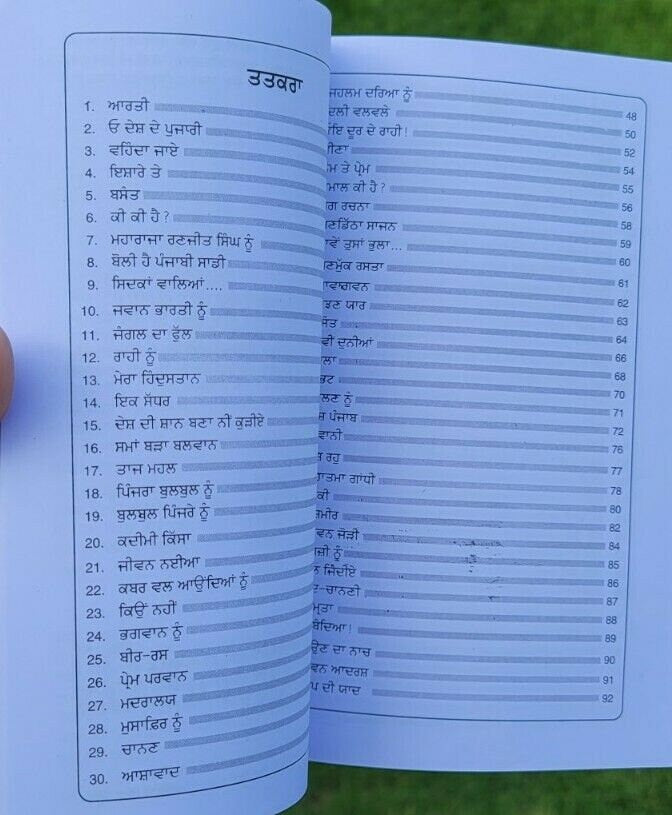 ਤਤਕਰਾ
1. ਆਰਤੀ
2. ਓ ਦੇਸ਼ ਦੇ ਪੁਜਾਰੀ
3. ਵਹਿੰਦਾ ਜਾਏ
4. ਇਸ਼ਾਰੇ ਤੇ
5. ਬਸੰਤ
6. ਕੀ ਕੀ ਹੈ ?
7. ਮਹਾਰਾਜਾ ਰਣਜੀਤ ਸਿੰਘ ਨੂੰ
8. ਬੋਲੀ ਹੈ ਪੰਜਾਬੀ ਸਾਡੀ
9. ਸਿਦਕਾਂ ਵਾਲਿਆਂ....
10. ਜਵਾਨ ਭਾਰਤੀ ਨੂੰ
11. ਜੰਗਲ ਦਾ ਫੁੱਲ
12. ਰਾਹੀ ਨੂੰ
13. ਮੇਰਾ ਹਿੰਦੁਸਤਾਨ
14. ਇਕ ਸੱਧਰ
15. ਦੇਸ਼ ਦੀ ਸ਼ਾਨ ਬਣਾ ਨੀਂ ਕੁੜੀਏ
16. ਸਮਾਂ ਬੜਾ ਬਲਵਾਨ
17. ਤਾਜ ਮਹਲ
18. ਪਿੰਜਰਾ ਬੁਲਬੁਲ ਨੂੰ
19. ਬੁਲਬੁਲ ਪਿੰਜਰੇ ਨੂੰ
20. ਕਦੀਮੀ ਕਿੱਸਾ
21. ਜੀਵਨ ਨਈਆ
22. ਕਬਰ ਵਲ ਆਉਂਦਿਆਂ ਨੂੰ
23. ਕਿਉਂ ਨਹੀਂ
24. ਭਗਵਾਨ ਨੂੰ
25. ਬੀਰ-ਰਸ
26. ਪ੍ਰੇਮ ਪਰਵਾਨ
27. ਮਦਰਾਲਯ
28. ਮੁਸਾਫ਼ਿਰ ਨੂੰ
29. ਚਾਨਣ
30. ਆਸ਼ਾਵਾਦ
ਦਰਿਆ ਨੂੰ 48
ਵਲਵਲੇ 50
ਦੂਰ ਦੇ ਰਾਹੀ ! 52
54
ਤੇ ਪ੍ਰੇਮ 55
ਕੀ ਹੈ ? 56
ਰਚਨਾ 58
ਸਾਜਨ 59
ਤੁਸਾਂ ਭੁਲਾ... 60
ਰਸਤਾ 61
62
ਯਾਰ 63
64
ਦੁਨੀਆਂ 66
68
70
ਨੂੰ 71
ਪੰਜਾਬ 72
76
ਰਹੁ 77
ਗਾਂਧੀ 78
80
82
ਜੋੜੀ 84
ਨੂੰ 85
ਜਿੰਦੀਏ 86
ਚਾਨਣੀ 87
88
89
ਦਾ ਨਾਚ 90
ਆਦਰਸ਼ 91
ਦੀ ਯਾਦ 92